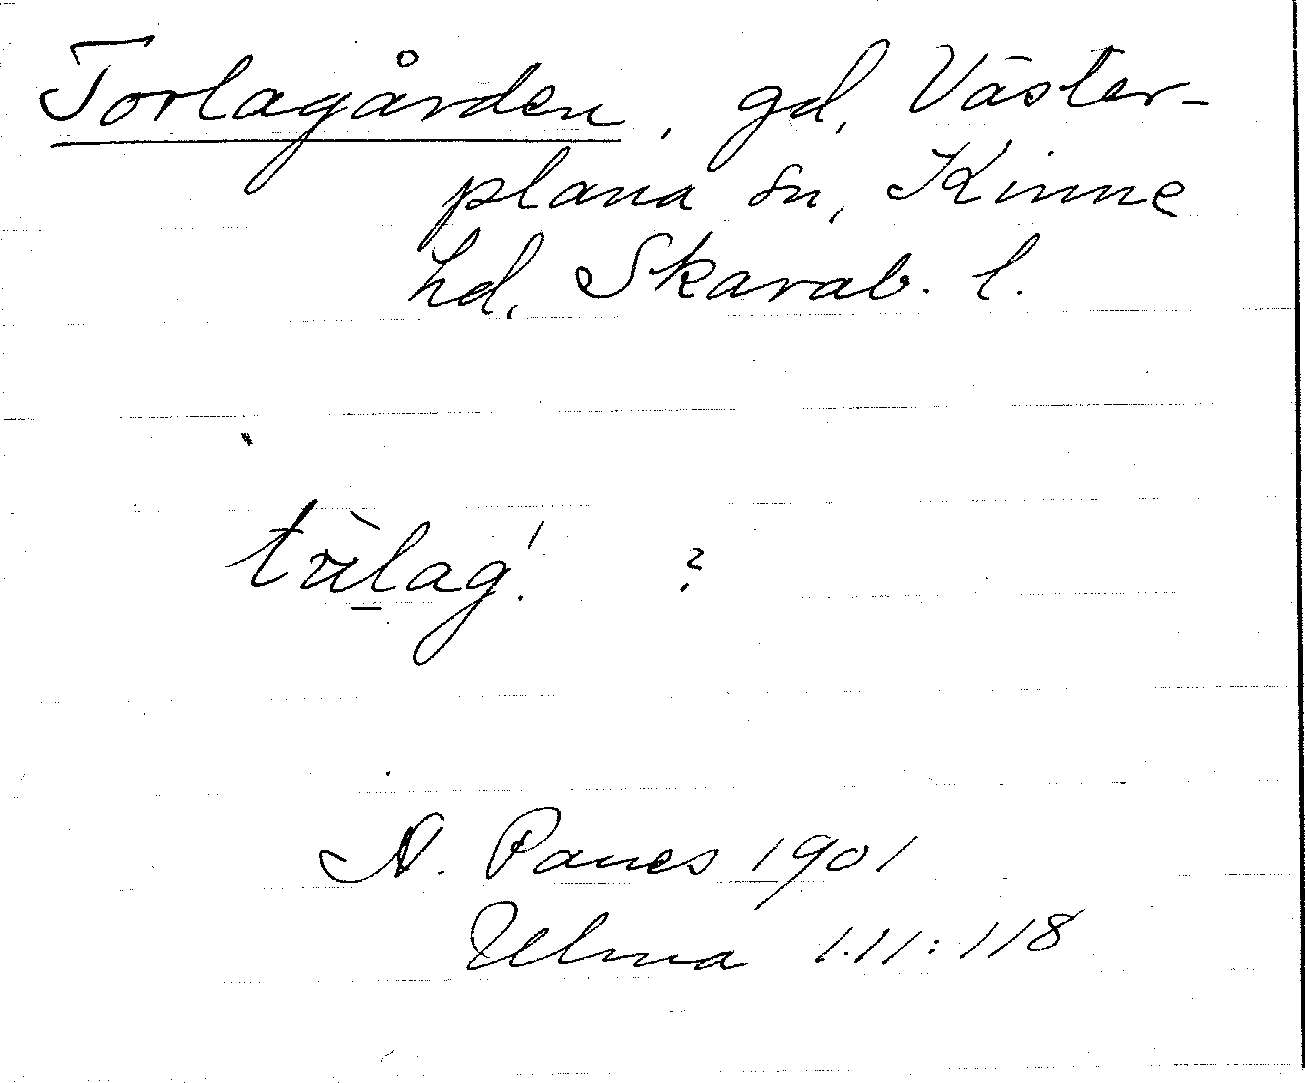 Torlagården, gd, Väster-
plana sn, Kinne
hd, Skarab. l.
?
N. Panes 1901
Ulma 1.11:118